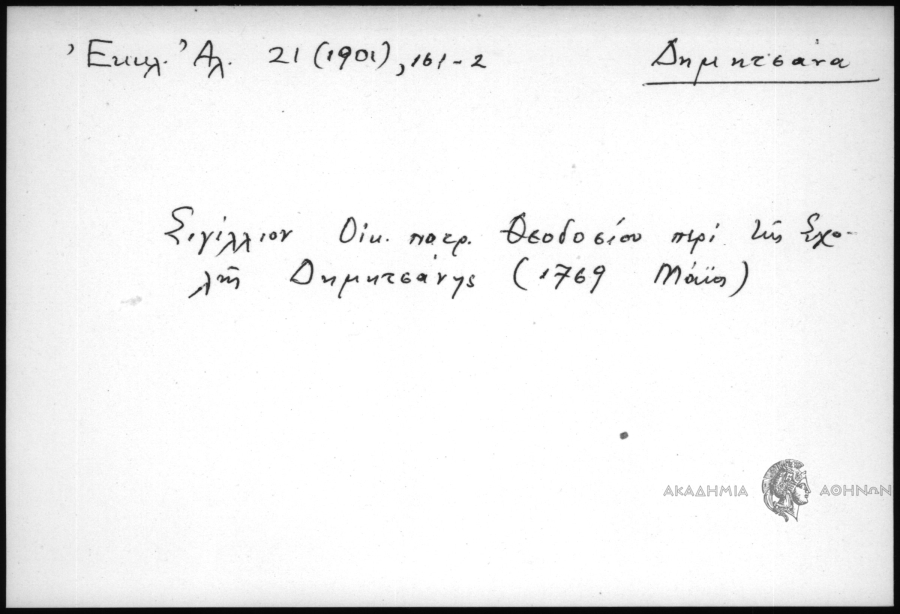 Ἐκκλ. Ἀλ. 21 (1901), 161-2
Δημητσάνα
Σιγίλλιον Οἰκ. πατρ. Θεοδοσίου περὶ τῆς Σχο-
λῆς Δημητσάνης (1769 Μάϊος)
ΑΚΑΔΗΜΙΑ ΑΘΗΝΩΝ